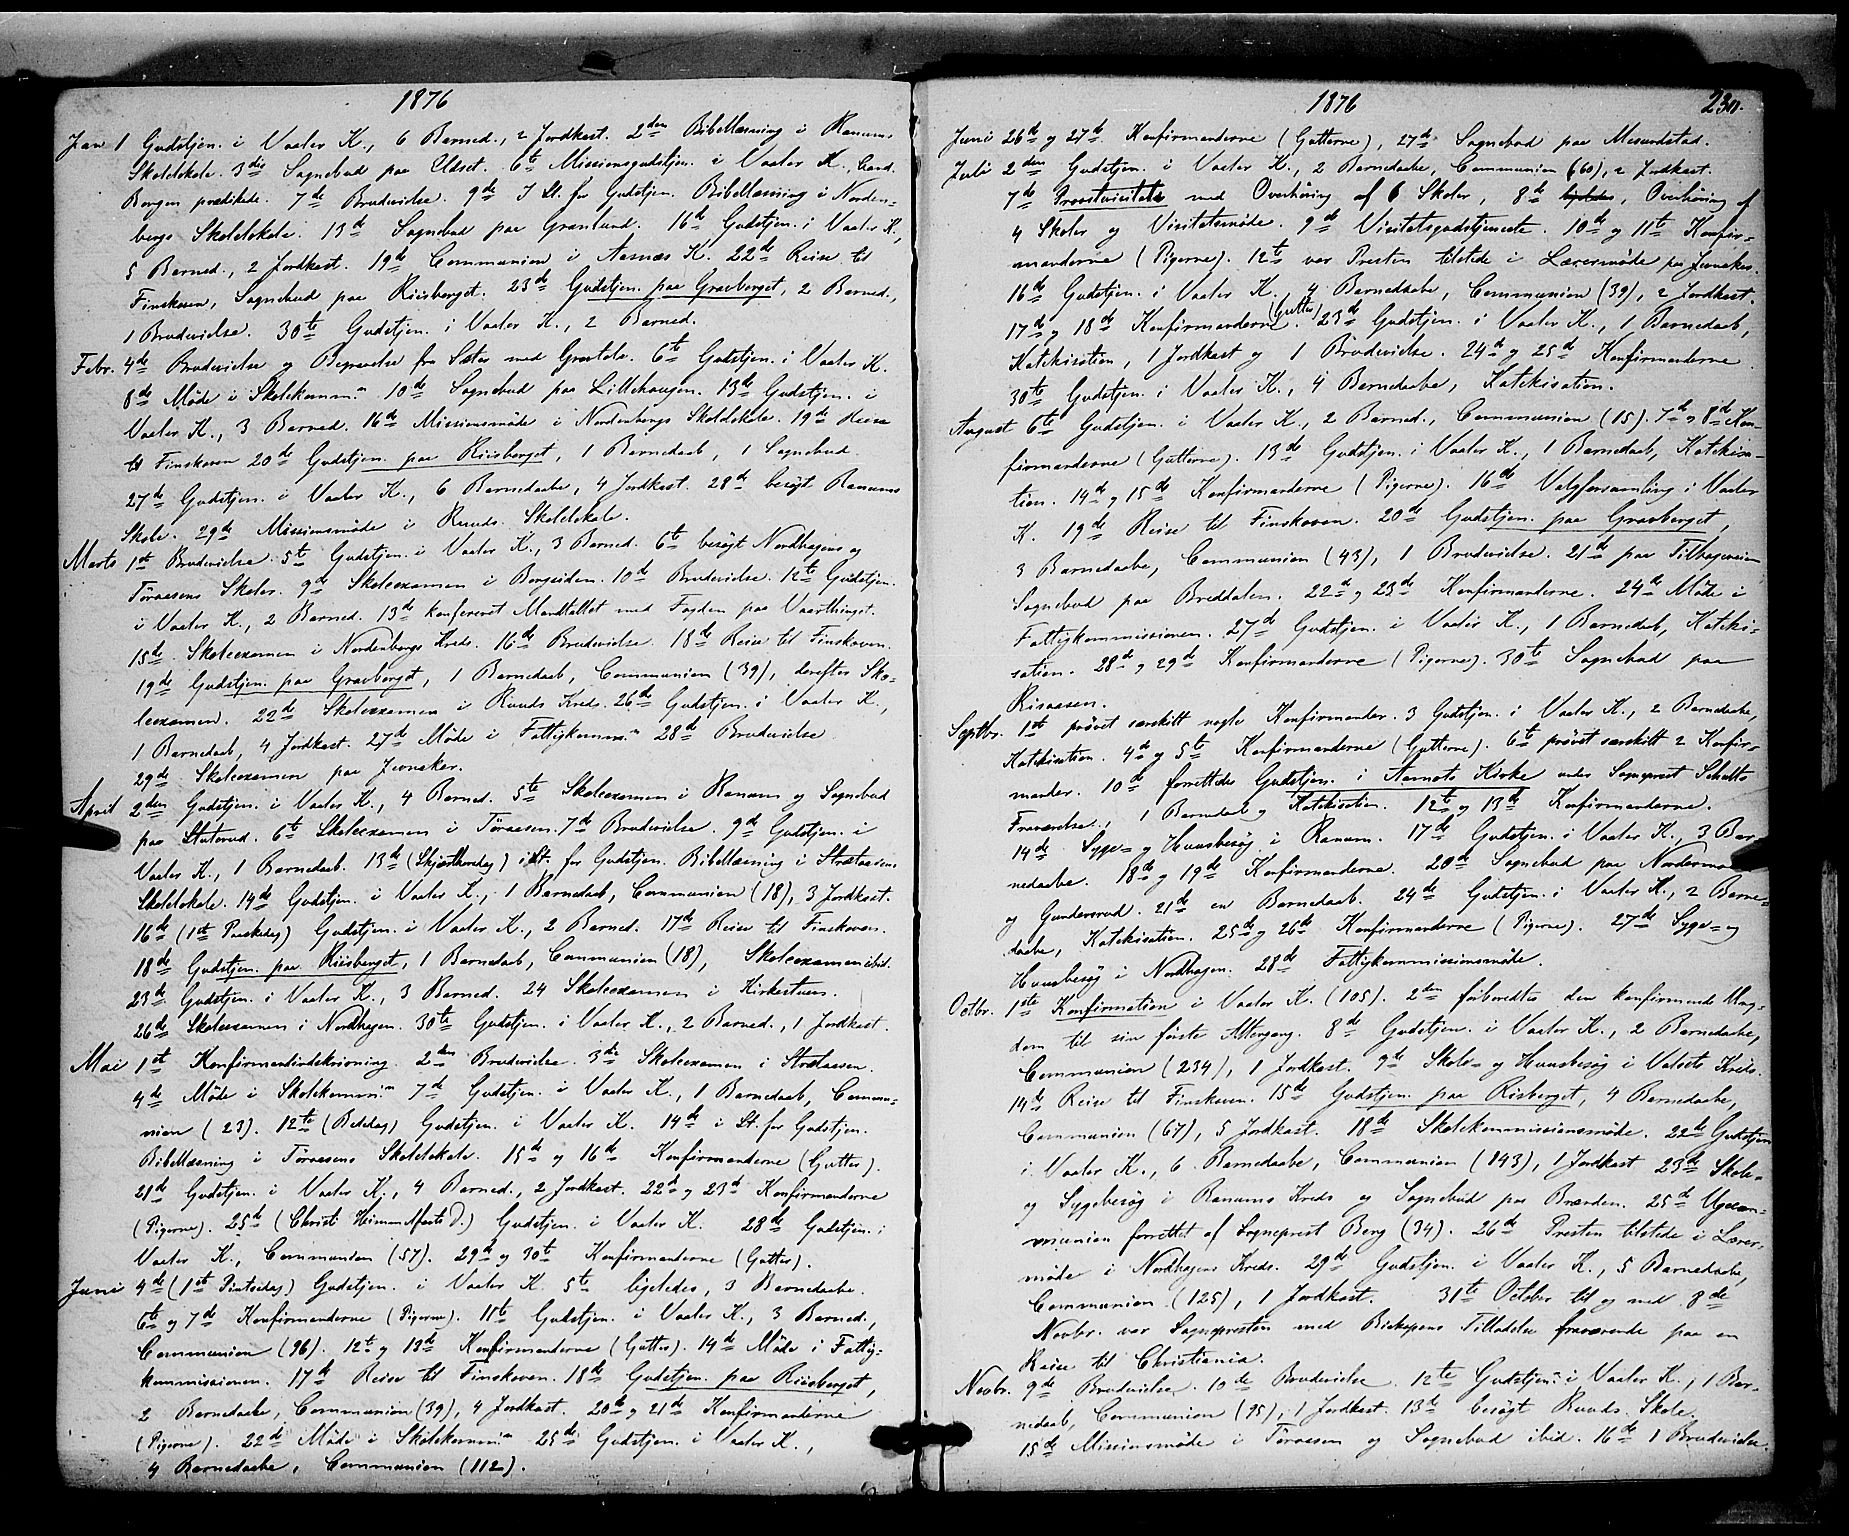 1876
Jan 1 Gudstjen. i Vaaler K., 6 Barned., 2 Jordkast. 2den Bibellæsning i Ranums
Skolelokale. 3die Sognebud paa Udset. 6te Missionsgudstjen. i Vaaler K., Cand.
Borgen prædikede. 7de Brudevielse. 9de I St. for Gudstjen. Bibellæsning i Norden=
bergs Skolelokale. 13de Sognebud paa Grønlund. 16de Gudstjen. i Vaaler K.,
5 Barned., 2 Jordkast. 19de Communion i Aasnæs K. 22de Reise til
Finskoven, Sognebud paa Riisberget. 23de Gudstjen. paa Gravberget, 2 Barned.,
1 Brudevielse. 30te Gudstjen. i Vaaler K., 2 Barned.
Febr. 4de Brudevielse og fra Sæter med. 6te Gudstjen. i Vaaler K.
8de Møde i Skolekomm.n 10de Sognebud paa Lillehaugen. 13de Gudstjen. i
Vaaler K., 3 Barned. 16de Missionsmøde i Nordenbergs Skolelokale. 19de Reise
til Finskoven 20de Gudstjen. paa Riisberget, 1 Barnedaab, 1 Sognebud.
27de Gudstjen. i Vaaler K., 6 Barnedaabe, 4 Jordkast. 28de besøgt Ranums
Skole. 29de Missionsmøde i Ruuds Skolelokale.
Marts 1ste Brudevielse. 5te Gudstjen. i Vaaler K., 3 Barned. 6te besøgt Nordhagens og
Töraasens Skoler. 9de Skoleexamen i Borgsiden. 10de Brudevielse. 12te Gudstjen.
i Vaaler K., 2 Barned. 13de konfereret Mandtallet med Fogden paa Vaarthinget.
15de Skoleexamen i Nordenbergs Kreds. 16de Brudevielse. 18de Reise til Finskoven.
19de Gudstjen. paa Gravberget, 1 Barnedaab, Communion (39), derefter Sko=
leexamen. 22de Skoleexamen i Ruuds Kreds. 26de Gudstjen. i Vaaler K.,
1 Barnedaab, 4 Jordkast. 27de Møde i Fattigkomm.n 28de Brudevielse.
29de Skoleexamen paa Jevnaker.
April 2den Gudstjen. i Vaaler K., 4 Barned. 5te Skoleexamen i Ranum og Sognebud
paa Stuterud. 6te Skoleexamen i Töraasen. 7de Brudevielse. 9de Gudstjen. i
Vaaler K., 1 Barnedaab. 13de (Skjærthorsdag) i St. for Gudstjen. Bibellæsning i Strætaasens
Skolelokale. 14de Gudstjen. i Vaaler K., 1 Barnedaab, Communion (18), 3 Jordkast.
16de (1ste Paaskedag) Gudstjen. i Vaaler K., 2 Barned. 17de Reise til Finskoven.
18de Gudstjen. paa Riisberget, 1 Barnedaab, Communion (18), Skoleexamen ibid.
23de Gudstjen. i Vaaler K., 3 Barned. 24 Skoleexamen i Kirkestuen.
26de Skoleexamen i Nordhagen. 30te Gudstjen. i Vaaler K., 2 Barned., 1 Jordkast.
Mai 1ste Konfirmandindskrivning. 2den Brudevielse. 3die Skoleexamen i Strætaasen.
4de Møde i Skolekomm.n 7de Gudstjen. i Vaaler K., 1 Barnedaab, Commu=
nion (23). 12te (Bededag) Gudstjen. i Vaaler K. 14de i St. for Gudstjen.
Bibellæsning i Töraasens Skolelokale. 15de og 16de Konfirmanderne (Gutter).
21de Gudstjen. i Vaaler K., 4 Barned., 2 Jordkast. 22de og 23de Konfirmanderne
(Pigerne). 25de (Christi Himmelfarts D.) Gudstjen. i Vaaler K. 28de Gudstjen. i
Vaaler K., Communion (57). 29de og 30te Konfirmanderne (Gutter).
Juni 4de (1ste Pintsedag) Gudstjen. i Vaaler K. 5te ligeledes, 3 Barnedaabe.
6te og 7de Konfirmanderne (Pigerne). 11te Gudstjen. i Vaaler K., 3 Barned.,
Communion (36). 12te og 13de Konfirmanderne (Gutter). 14de Møde i Fattig=
kommissionen. 17de Reise til Finskoven. 18de Gudstjen. paa Riisberget,
2 Barnedaabe, Communion (39), 4 Jordkast. 20de og 21de Konfirmanderne
(Pigerne). 22de Møde i Skolekomm.n 25de Gudstjen. i Vaaler K.,
4 Barnedaabe, Communion (112).
1876
230.
Juni 26de og 27de Konfirmanderne (Gutterne), 27de Sognebud paa Mesundstad.
Juli 2den Gudstjen. i Vaaler K., 2 Barnedaabe, Communion (60), 2 Jordkast.
7de Provstevisitats med Overhøring af 6 Skoler, 8de ligeledes, Overhøring af
4 Skoler og Visitatsmøde. 9de Visitatsgudstjeneste. 10de og 11te Konfir=
manderne (Pigerne). 12te var Presten tilstede i Lærermøde paa Jevnaker.
16de Gudstjen. i Vaaler K., 4 Barnedaabe, Communion (39), 2 Jordkast.
17de og 18de Konfirmanderne (Gutter). 23de Gudstjen. i Vaaler K., 1 Barnedaab,
Katekisation, 1 Jordkast og 1 Brudevielse. 24de og 25de Konfirmanderne.
30te Gudstjen. i Vaaler K., 4 Barnedaabe, Katekisation.
August 6te Gudstjen. i Vaaler K., 2 Barned., Communion (15). 7de og 8de Kon=
firmanderne (Gutterne). 13de Gudstjen. i Vaaler K., 1 Barnedaab, Katekisa=
tion. 14de og 15de Konfirmanderne (Pigerne). 16de Valgforsamling i Vaaler
K. 19de Reise til Finskoven. 20de Gudstjen. paa Gravberget,
3 Barnedaabe, Communion (43), 1 Brudevielse. 21de paa Tilbageveien
Sognebud paa Breddalen. 22de og 23de Konfirmanderne. 24de Møde i
Fattigkommissionen. 27de Gudstjen. i Vaaler K., 1 Barnedaab, Kateki=
sation. 28de og 29de Konfirmanderne (Pigerne). 30te Sognebud paa
Risaasen.
Septbr. 1ste prøvet særskilt nogle Konfirmander. 3 Gudstjen. i Vaaler K., 2 Barnedaabe,
Katekisation. 4de og 5te Konfirmanderne (Gutterne). 6te prøvet særskilt 2 Konfir=
mander. 10de forrettedes Gudstjen. i Aamots Kirke under Sogneprest Schults
Fraværelse, 1 Barnedaab og Katekisation. 12te og 13de Konfirmanderne.
14de Syge= og Huusbesøg i Ranum. 17de Gudstjen. i Vaaler K., 3 Bar=
nedaabe. 18de og 19de Konfirmanderne. 20de Sognebud paa
og Gundersrud. 21de en Barnedaab. 24de Gudstjen. i Vaaler K., 2 Barne=
daabe, Katekisation. 25de og 26de Konfirmanderne (Pigerne). 27de Syge= og
Huusbesøg i Nordhagen. 28de Fattigkommissionsmøde.
Octbr. 1ste Konfirmation i Vaaler K. (105). 2den forberedtes den konfirmerede Ung=
dom til sin første Altergang. 8de Gudstjen. i Vaaler K., 2 Barnedaabe,
Communion (234), 1 Jordkast. 9de Skole= og Huusbesøg i Valsets Kreds.
14de Reise til Finskoven. 15de Gudstjen. paa Risberget, 4 Barnedaabe,
Communion (67), 5 Jordkast. 18de Skolekommissionsmøde. 22de Gudstjen
i Vaaler K., 6 Barnedaabe, Communion (143), 1 Jordkast 23de Skole=
og Sygebesøg i Ranums Kreds og Sognebud paa Brænden. 25de Ugecom=
munion forrettet af Sogneprest Berg (34). 26de Presten tilstede i Lærer=
møde i Nordhagens Kreds. 29de Gudstjen. i Vaaler K., 5 Barnedaabe,
Communion (125), 1 Jordkast. 31te October til og med 8de
Novbr. var Sognepresten med Biskopens Tilladelse fraværende paa en
Reise til Christiania.
Novbr. 9de Brudevielse. 10de Brudevielse. 12te Gudstjen. i Vaaler K., 1 Bar=
nedaab, Communion (95), 1 Jordkast. 13de besøgt Ruuds Skole.
15de Missionsmøde i Töraasen og Sognebud ibid. 16de 1 Brudevielse.